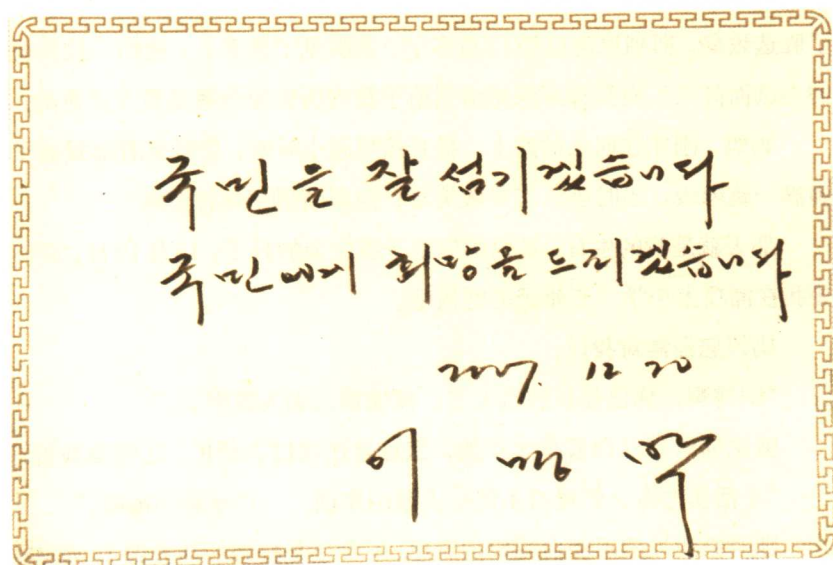 국민을 잘 섬기겠습니다
국민에게 희망을 드리겠습니다
2007. 12 20
이명박